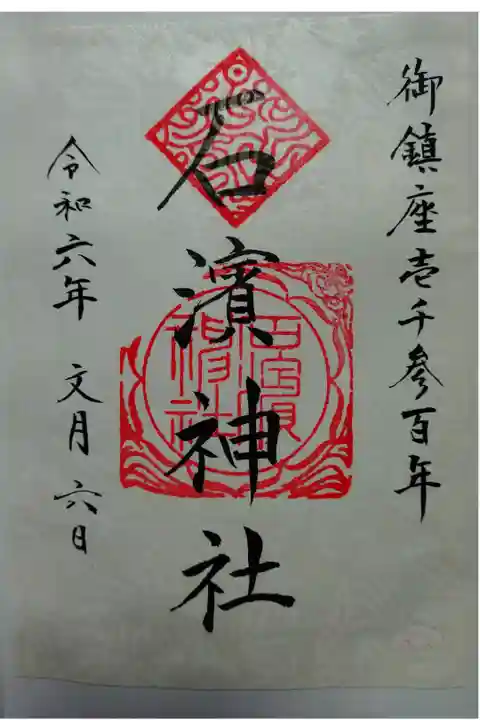 御鎮座壱千参百年
石濱神社
令和六年 文月 六日
石濱
神社